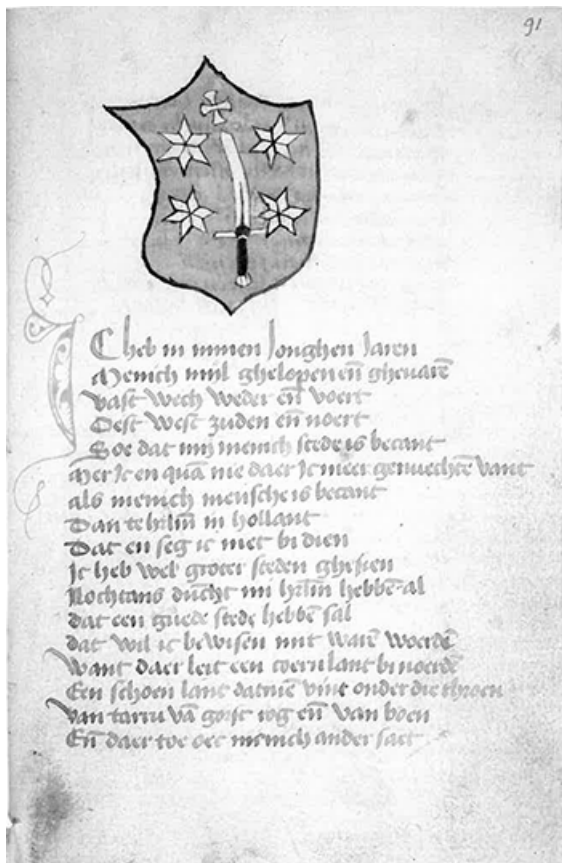 91
IC heb in minen Jonghen Jaren
Menich mijl ghelopen eñ gheuarē
vast wech weder eñ voert
Oest west zuden eñ noert
Soe dat mij menich stede is becant
Mer Ic en quā nie daer Ic meer genuechtē vant
als menich mensche is becant
Dan te hrlm̄ in hollant
Dat en seg ic niet bi dien
Ic heb wel groter steden ghesien
Nochtans dūcht mi hrlm̄ hebbē al
dat een guede stede hebben sal
dat wil ic bewisen mit warē woerdē
want daer leit een coern lant bi noerdē
Een schoen lant datmē vint onder die throen
van tarru vā gorst rog eñ van boen
Eñ daer toe oec menich ander saet